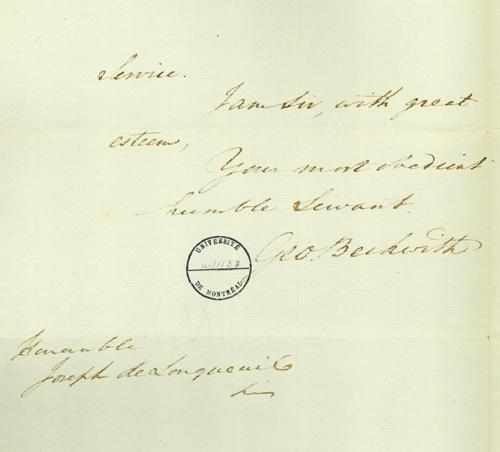 Service.
I am Sir, with great
esteem,
Your most obedient
humble Servant.
Geo. Beckwith
UNIVERSITÉ
DE MONTRÉAL
Honorable
Joseph de Longueuil